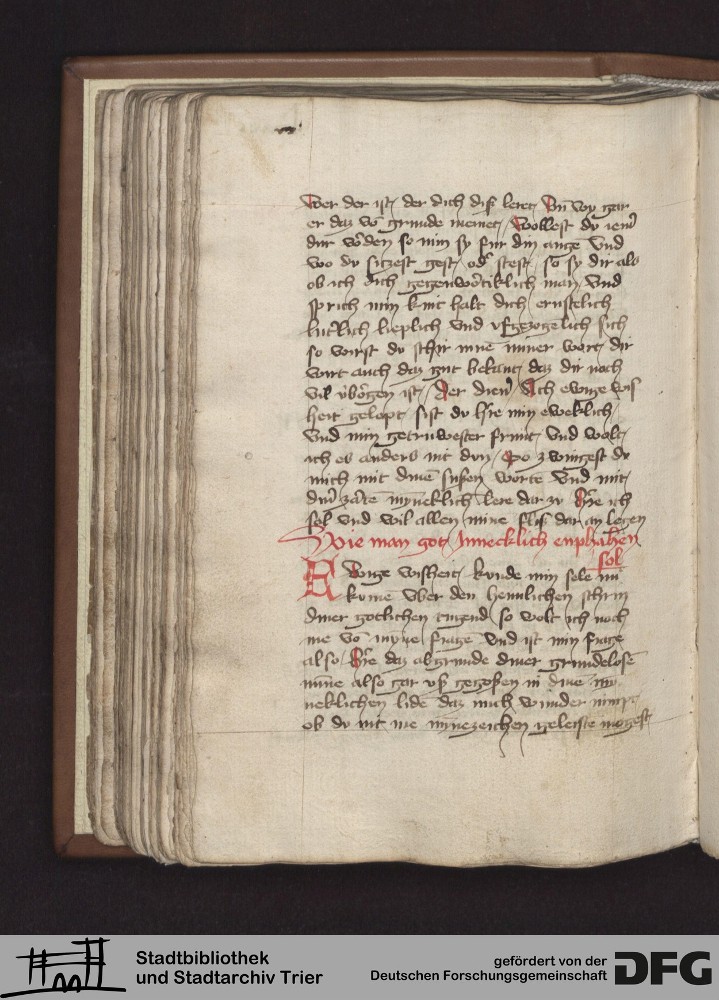 Wer der ist der dich diß leret Vnd wy gar
er daz vō grunde meinet Wollest dv iem̄
dur wōden so nim sy fur din auge Vnd
wo dv siczest gest od̄ stest so sy dir als
ob ich dich gegenwōtiklich man Vnd
sprich min kint halt dich ernstelich
lut̄lich lieplich Vnd vfgezogēlich sich
so wirst dv schir inne miner wort dir
wirt auch daz gut bekant daz dir noch
vil v̄bōgen ist Der dien̄ Ach ewige wis
heit gelopt sist dv hr̄e min eweklich
Vnd min getruwester frunt Vnd wolt
ich es anders nit dvn So zwingest dv
mich mit dinē sußen worte Vnd mit
din̄ zarte mȳneklich lere dar zv hr̄e ich
sol vnd wil allen mine fliß dar an legen
Wie man got Innecklich enphahen
sol
Ewige wisheit kunde min sele nū
kome vber den hemlichen schrin
diner gotlichen tugend so wolt ich noch
me vō mȳne frage Vnd ist min frage
also hr̄e daz abgrunde diner grundelosē
minne also gar vß gegoßen in dine my
neklichen lide daz mich wunder nimpt
ob dv nit me mynezeichen geleiste mōgest
Stadtbibliothek
und Stadtarchiv Trier
gefördert von der
Deutschen Forschungsgemeinschaft
DFG